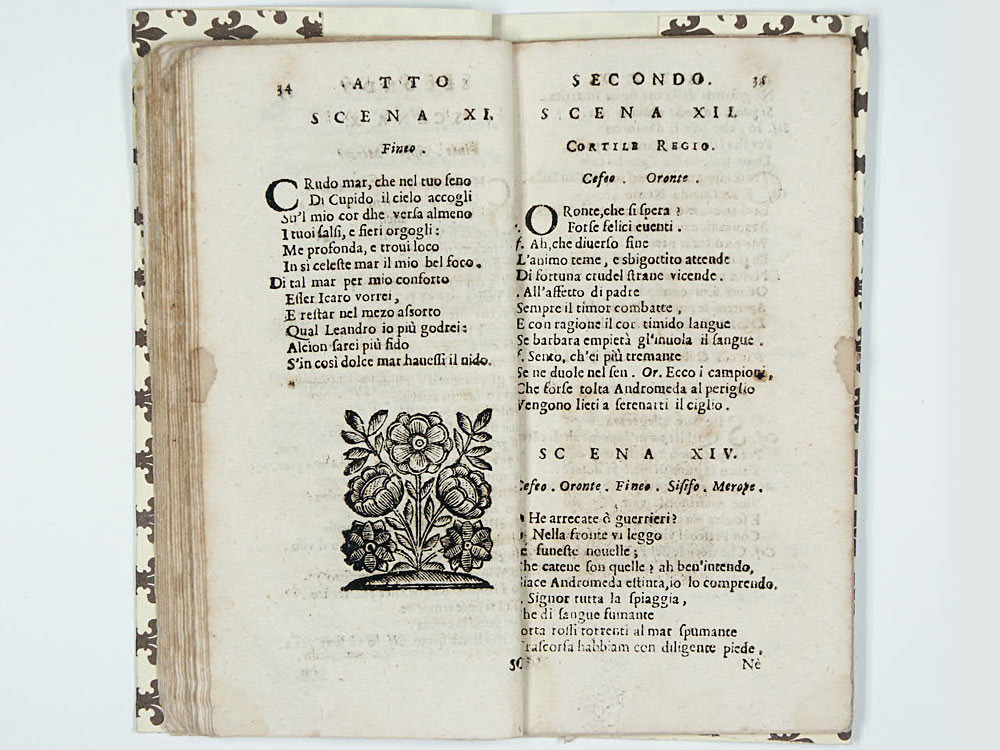 34 ATTO
SCENA XI.
Fineo.
CRudo mar, che nel tuo ſeno
Di Cupido il cielo accogli
Su'l mio cor dhe verſa almeno
I tuoi ſalſi, e fieri orgogli:
Me profonda, e troui loco
In sì celeſte mar il mio bel foco.
Di tal mar per mio conforto
Eſſer Icaro vorrei,
E reſtar nel mezo aſſorto
Qual Leandro io più godrei:
Alcion ſarei più fido
S'in così dolce mar haueſſi il nido.
SECONDO. 35
SCENA XII.
CORTILE REGIO.
Cefeo. Oronte.
ORonte, che ſi ſpera?
Forſe felici euenti.
f. Ah, che diuerſo fine
L'animo teme, e sbigottito attende
Di fortuna crudel ſtrane vicende.
. All'affetto di padre
Sempre il timor combatte,
E con ragione il cor timido langue
Se barbara empietà gl'inuola il ſangue.
f. Sento, ch'ei più tremante
Se ne duole nel ſen. Or. Ecco i campioni,
Che forſe tolta Andromeda al periglio
Vengono lieti a ſerenarti il ciglio.
SCENA XIV.
Cefeo. Oronte. Fineo. Siſifo. Merope.
He arrecate ò guerrieri?
Nella fronte vi leggo
funeſte nouelle;
he catene ſon quelle? ah ben'intendo,
iace Andromeda eſtinta, io lo comprendo.
. Signor tutta la ſpiaggia,
he di ſangue fumante
orta roſſi torrenti al mar ſpumante
raſcorſa habbiam con diligente piede,
Nè